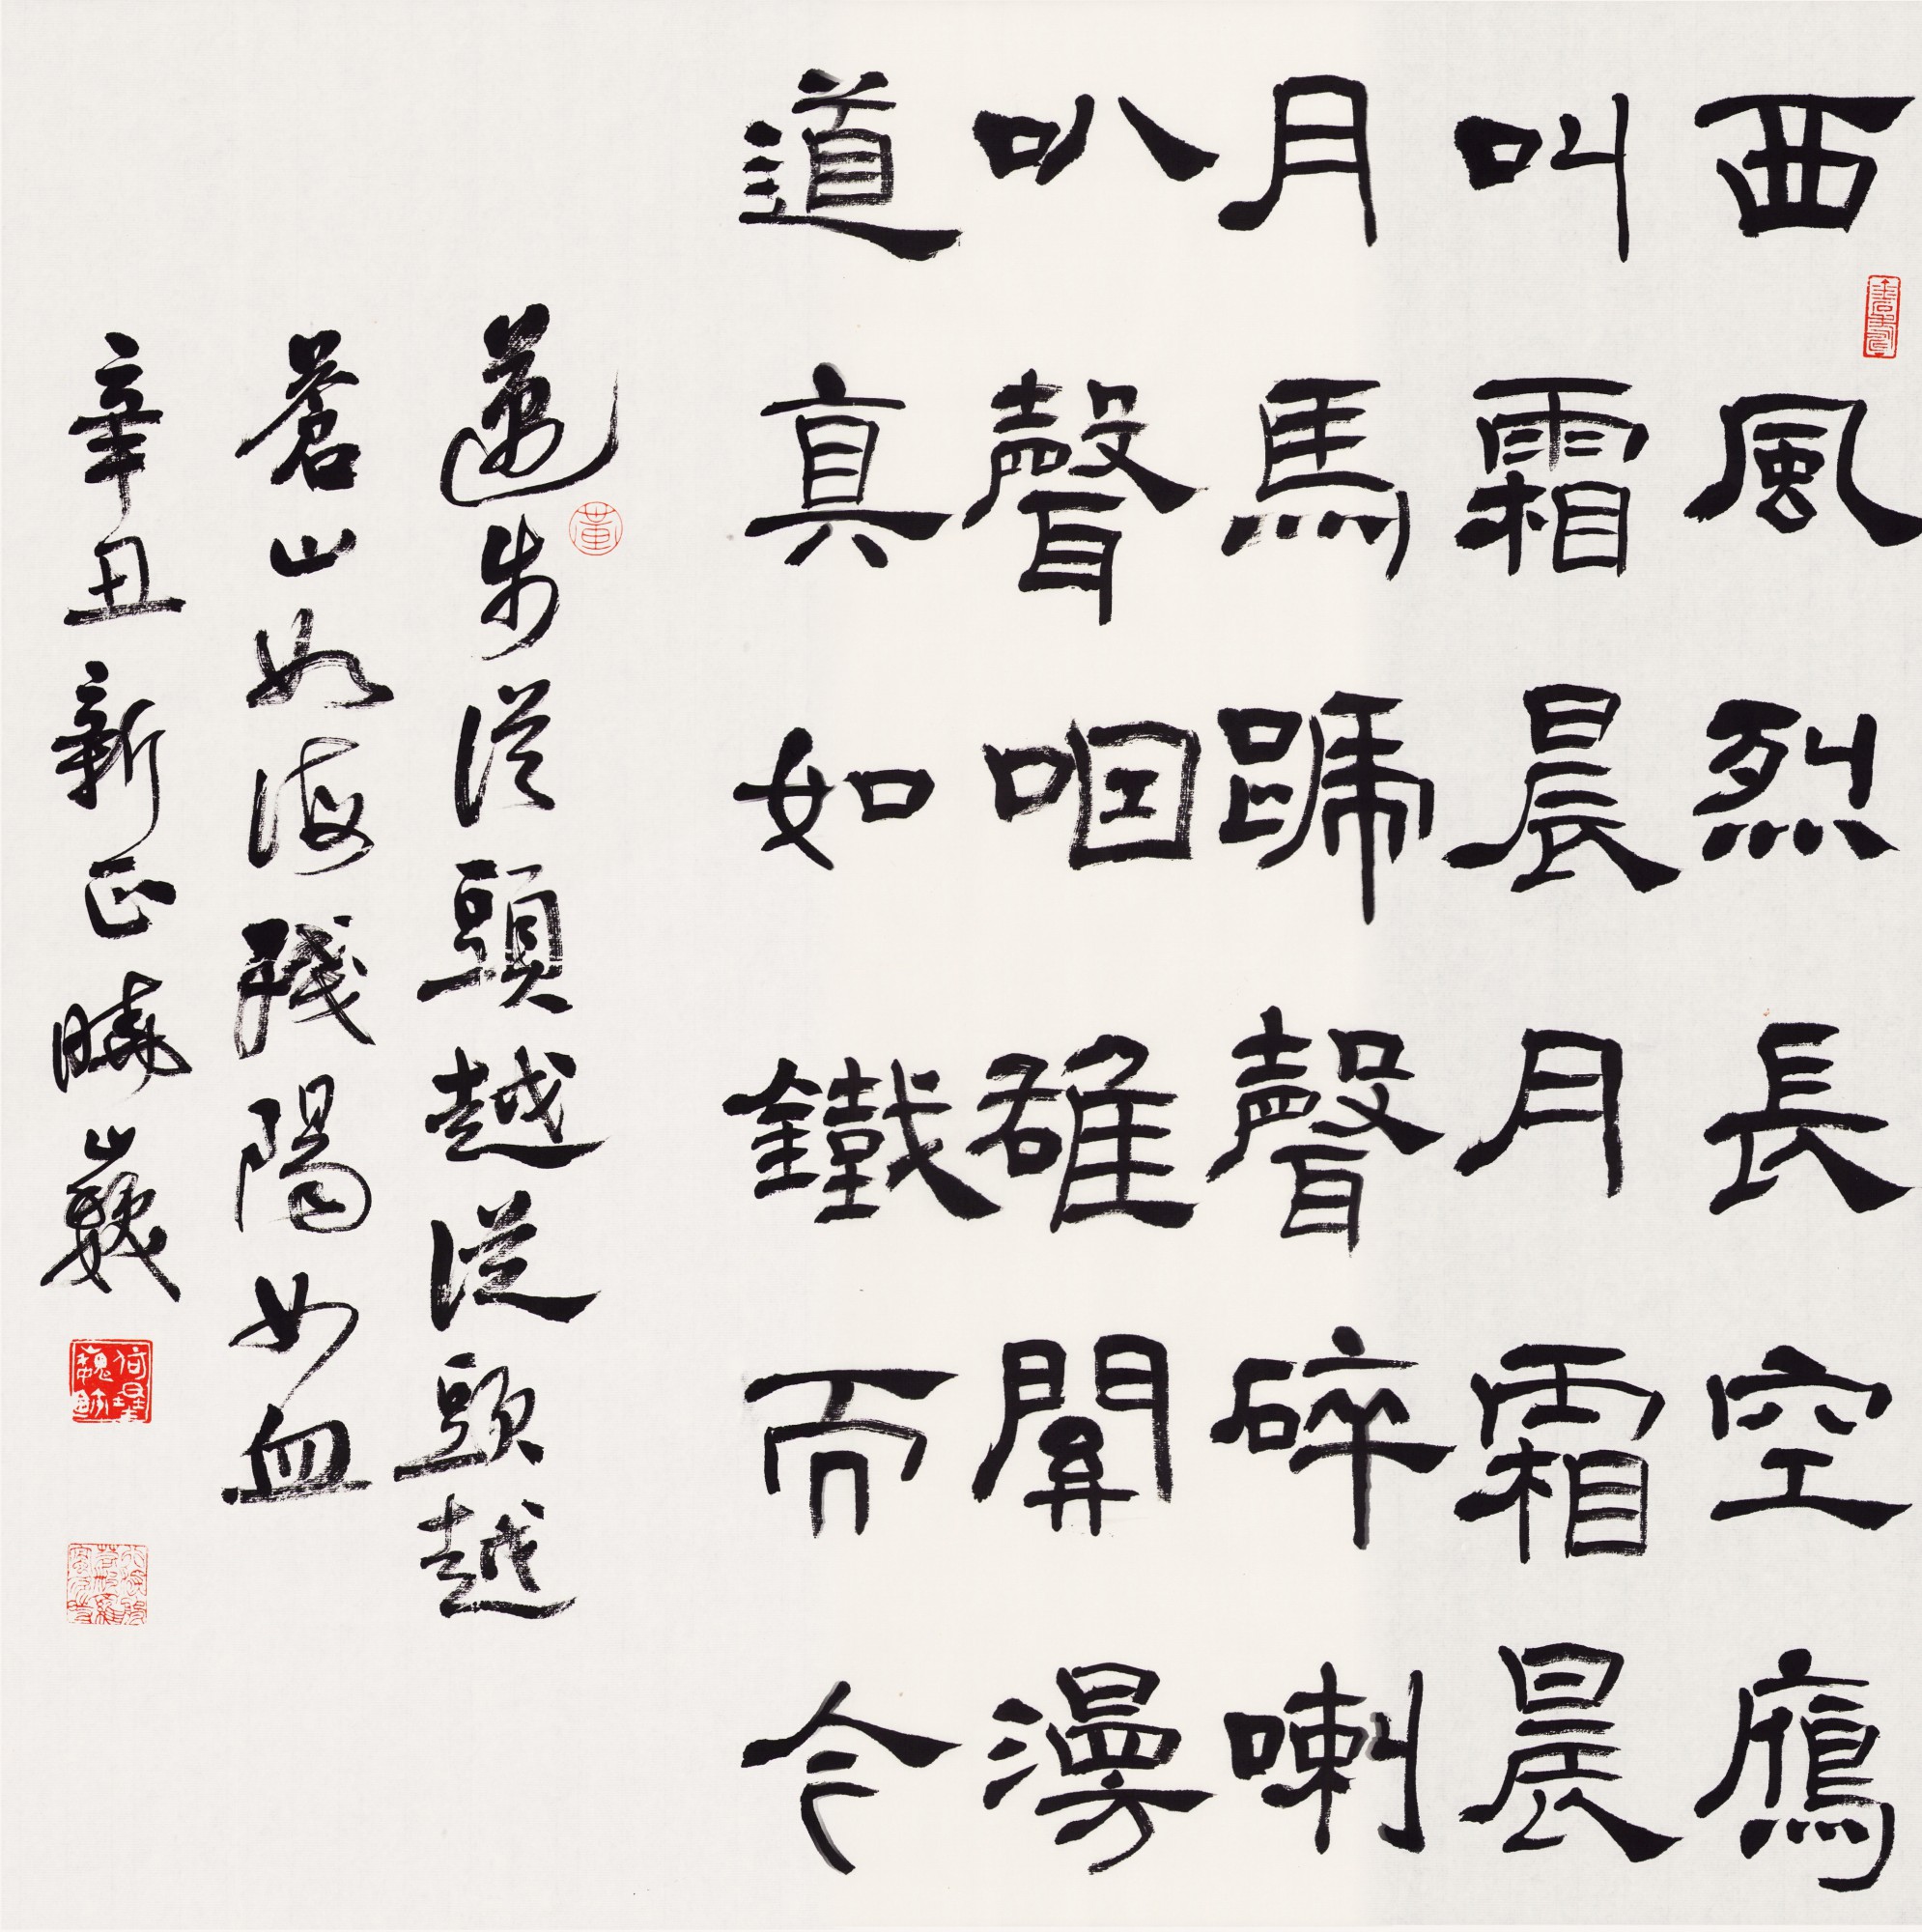 西風烈長空鴈
叫霜晨月霜晨
月馬蹄聲碎喇
叭聲咽雄關漫
道真如鐵而今
邁步從頭越從頭越
蒼山如海殘陽如血
辛丑新正曉巍